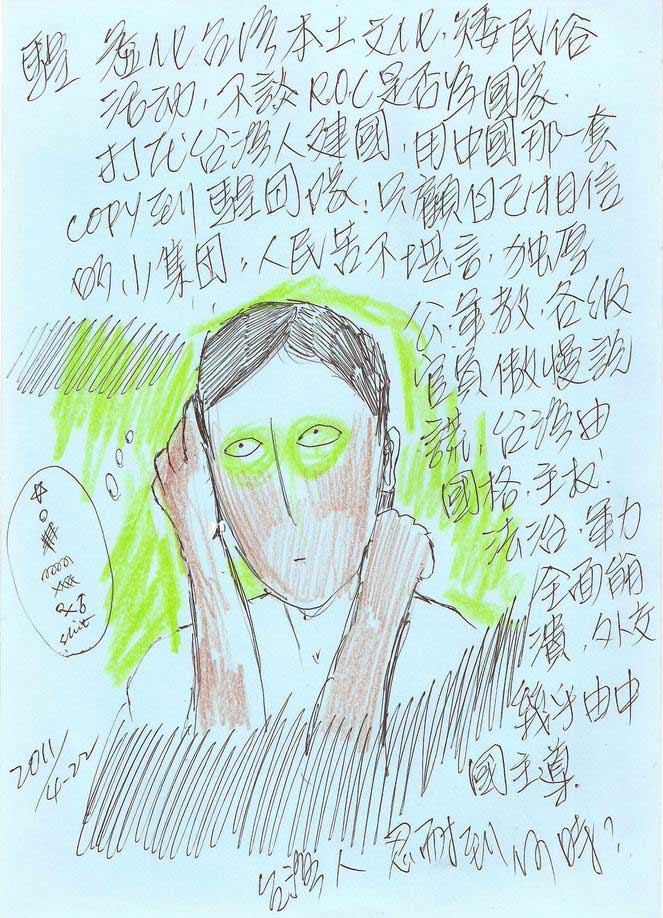 化台灣本土文化,矮民俗
活动,不談R.O.C是否為國家.
打台灣人建國,用中國那一套
COPY到 只顧自己相信
的小集团,人民苦不堪言,加
公.軍教.各級
官員傲慢說
謊,台灣由
國格.主权.
法治.軍力
全面崩
潰,外交
幾乎由中
國主導.
shit
2011/4-22
台灣人 忍耐到何時?